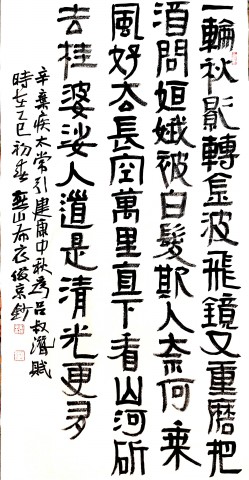 一輪秋影轉金波飛鏡又重磨把
酒問姮娥被白髮欺人奈何乘
風好去長空萬里直下看山河斫
去桂婆娑人道是清光更多
辛棄疾太常引建康中秋為呂叔潛賦
時在乙巳初春燕山布衣俊京鈔